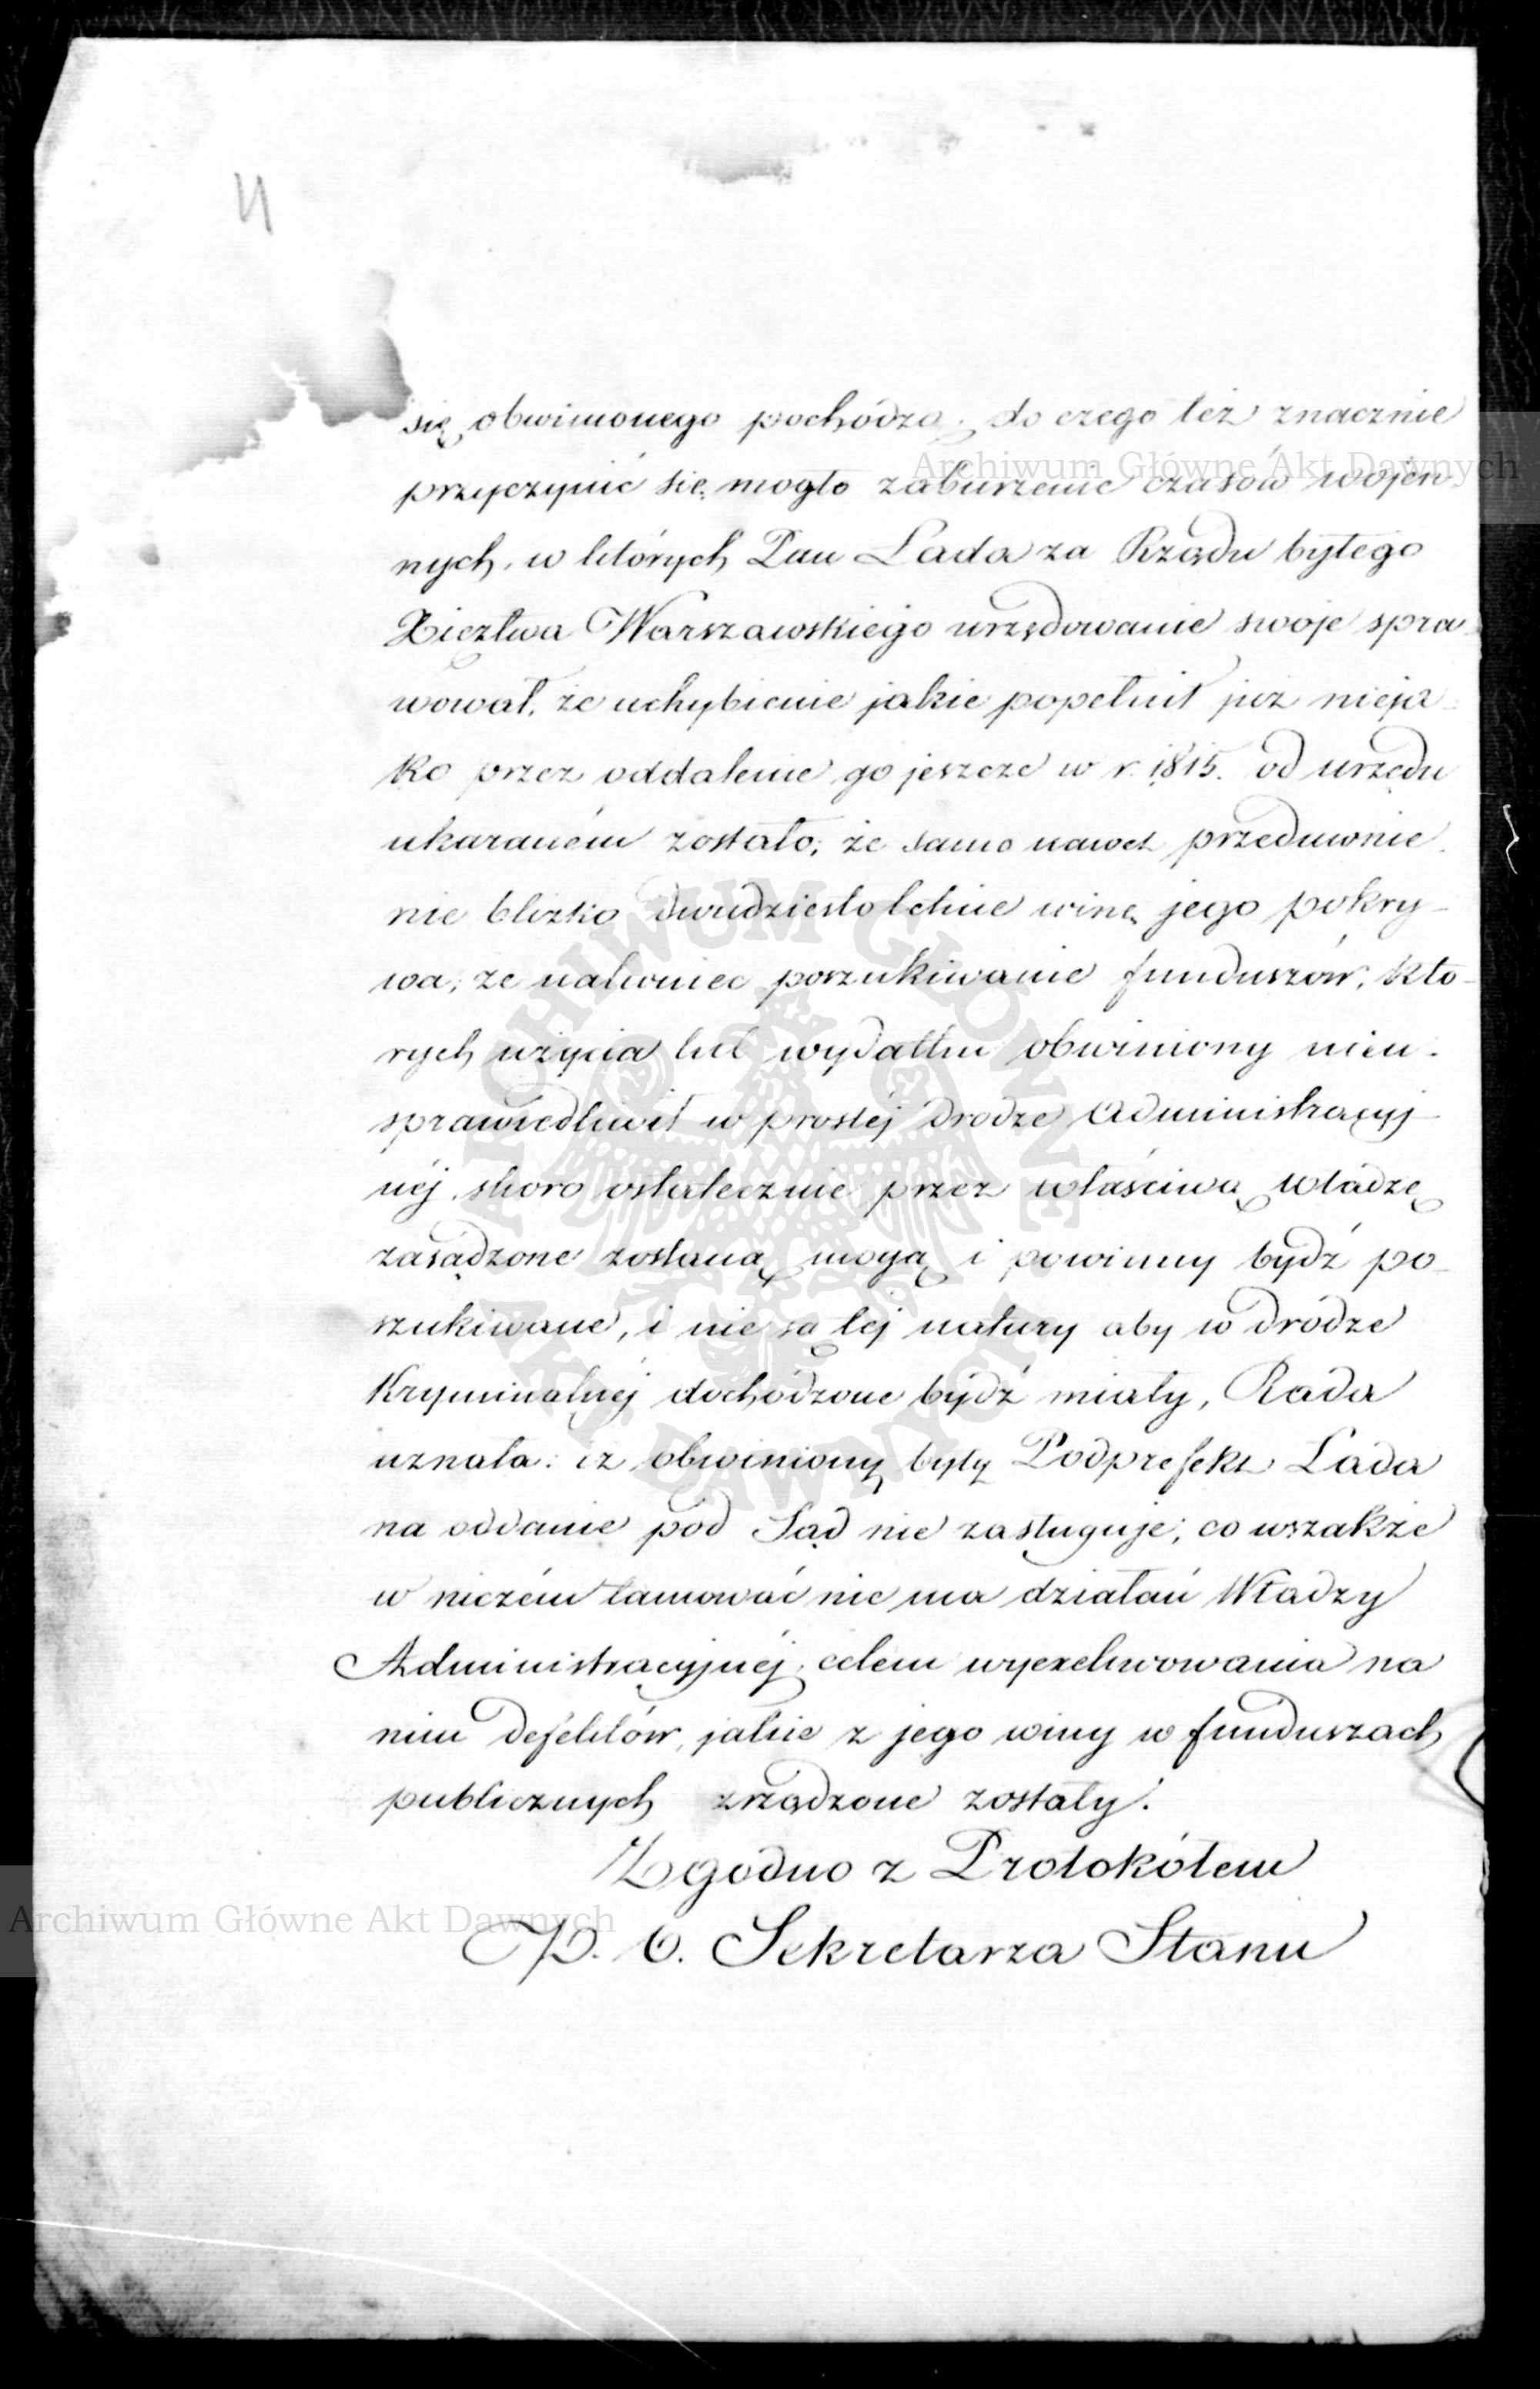 się obwinionego pochodzą; do czego też znacznie
Archiwum Główne Akt Dawnych
przyczynić się mogło zaburzenie czasów wojen-
nych, w których Pan Łada za Rządu byłego
Xięztwa Warszawskiego urzędowanie swoje spra-
wował, że uchybienie jakie popełnił już nieja-
ko przez oddalenie go jeszcze w r. 1815. od urzędu
ukaraném zostało; że samo nawet przedawnie-
nie blizko dwudziestoletnie winę jego pokry-
wa; że nakoniec poszukiwanie funduszów, któ-
rych użycia lub wydatku obwiniony nieu-
sprawiedliwił w prostéj drodze Administracyj-
néj, skoro ostatecznie przez właściwą władzę
zasądzone zostaną, mogą i powinny bydź po-
szukiwane, i nie są téj natury aby w drodze
Kryminalnéj dochodzone bydź miały, Rada
uznała: iż obwiniony były Podprefekt Łada
na oddanie pod Sąd nie zasługuje; co wszakże
w niczém tamować nie ma działań Władzy
Administracyjnéj, celem wyexekwowania na
nim defektów, jakie z jego winy w funduszach
publicznych zrządzone zostały.
Zgodno z Protokółem
Archiwum Główne Akt Dawnych
P. O. Sekretarza Stanu
ARCHIWUM GŁÓWNE AKT DAWNYCH